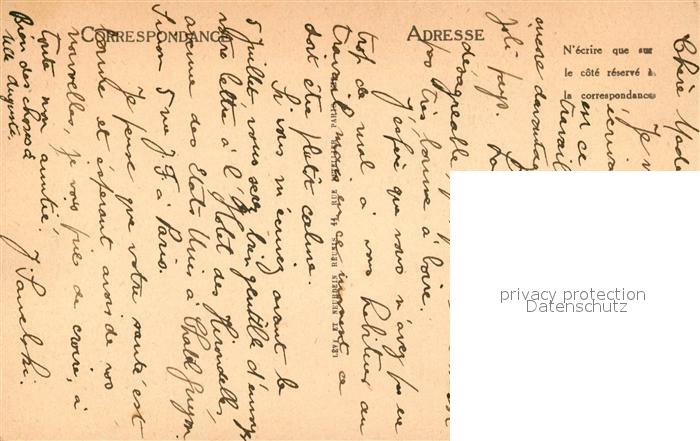 CORRESPONDANCE
ADRESSE
N'écrire que sur
le côté réservé à
la correspondance
LÉVY ET NEURDEIN RÉUNIS, 44, RUE LETELLIER, PARIS
Chère
Je
en ce
travail
encore davantage
joli pays.
désagréable
pas très bonne à boire.
J'espère que vous n'avez pas eu
trop de mal à vous habituer au
travail, mais en ce moment ce
doit être plutôt calme.
Si vous m'écrivez avant le
5 Juillet vous serez bien gentille d'envoyer
votre lettre à l'Hotel des Hirondelles,
avenue des Etats Unis à Chatel Guyon
Sinon 5 rue J. F. à Paris.
Je pense que votre santé est
bonne et espérant avoir de vos
nouvelles, je vous prie de croire, à
toute mon amitié.
Bien des choses à
Mlle Auguste.
privacy protection
Datenschutz